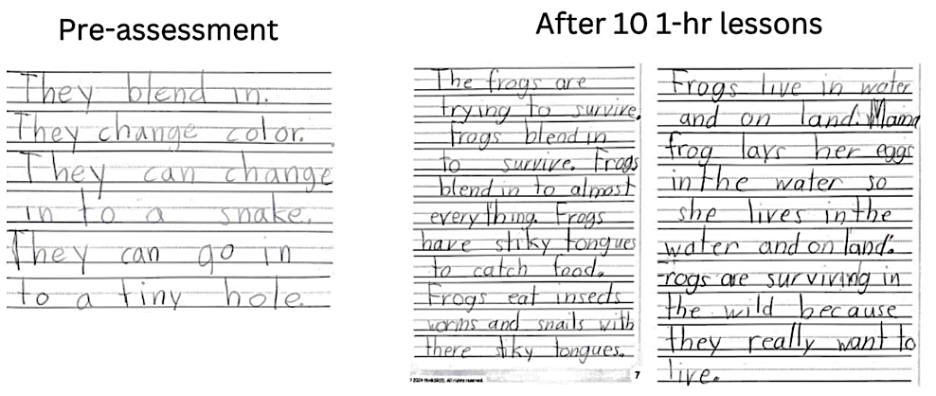 Pre-assessment
They blend in.
They change color.
They can change
in to a snake.
They can go in
to a tiny hole.
After 10 1-hr lessons
The frogs are
trying to survive.
Frogs blend in
to survive. Frogs
blend in to almost
everything. Frogs
have stiky tongues
to catch food.
Frogs eat insects
worms and snails with
there stiky tongues.
7
Frogs live in water
and on land. Mama
frog lays her eggs
in the water so
she lives in the
water and on land.
rogs are surviving in
the wild because
they really want to
live.